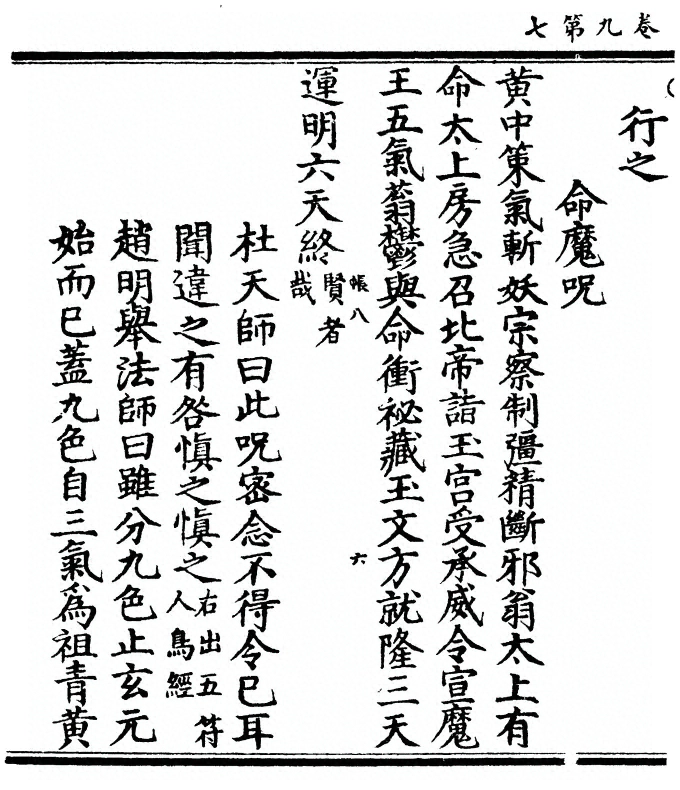 卷九第七
行之
命魔呪
黄中策氣斬妖宗察制彊精斷邪翁太上有
命太上房急召北帝詣玉宮受承威令宣魔
王五氣蓊鬱與命衝祕藏玉文方就隆三天
帳八
六
運明六天終賢者哉
杜天師曰此呪密念不得令已耳
聞違之有咎愼之愼之右出五符人鳥經
趙明舉法師曰雖分九色止玄元
始而已蓋九色自三氣爲祖青黄